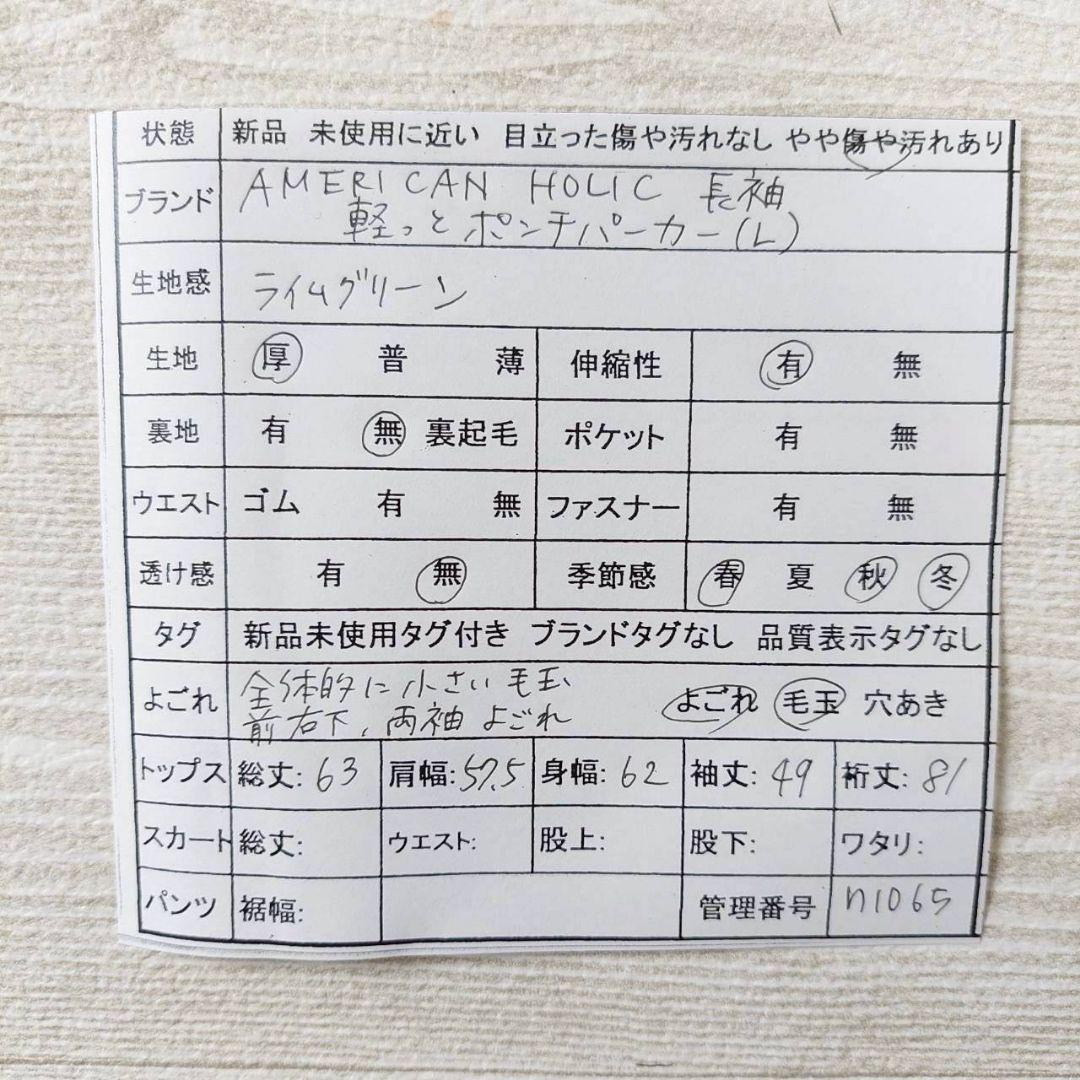 状態 新品 未使用に近い 目立った傷や汚れなし やや傷や汚れあり
ブランド AMERICAN HOLIC 長袖
軽っとポンチパーカー(L)
生地感 ライムグリーン
生地 厚 普 薄 伸縮性 有 無
裏地 有 無 裏起毛 ポケット 有 無
ウエスト ゴム 有 無 ファスナー 有 無
透け感 有 無 季節感 春 夏 秋 冬
タグ 新品未使用タグ付き ブランドタグなし 品質表示タグなし
よごれ 全体的に小さい毛玉 よごれ 毛玉 穴あき
前右下、両袖よごれ
トップス 総丈:63 肩幅:57.5 身幅:62 袖丈:49 裄丈:81
スカート 総丈: ウエスト: 股上: 股下: ワタリ:
パンツ 裾幅: 管理番号 n1065